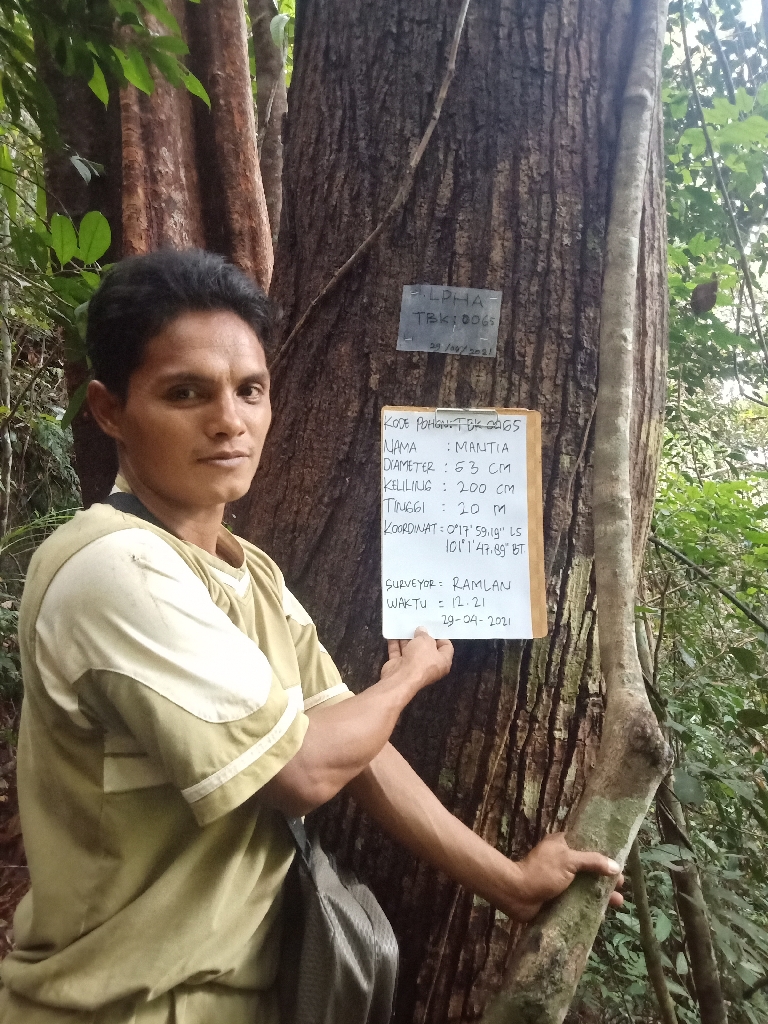 ALPHA
TBK: 0065
29/04/2021
KODE POHON: TBK 0065
NAMA : MANTIA
DIAMETER : 63 CM
KELILING : 200 CM
TINGGI : 20 M
KOORDINAT = 0°17'59,19" LS
101°1'47,89" BT
SURVEYOR = RAMLAN
WAKTU = 12.21
29-04-2021